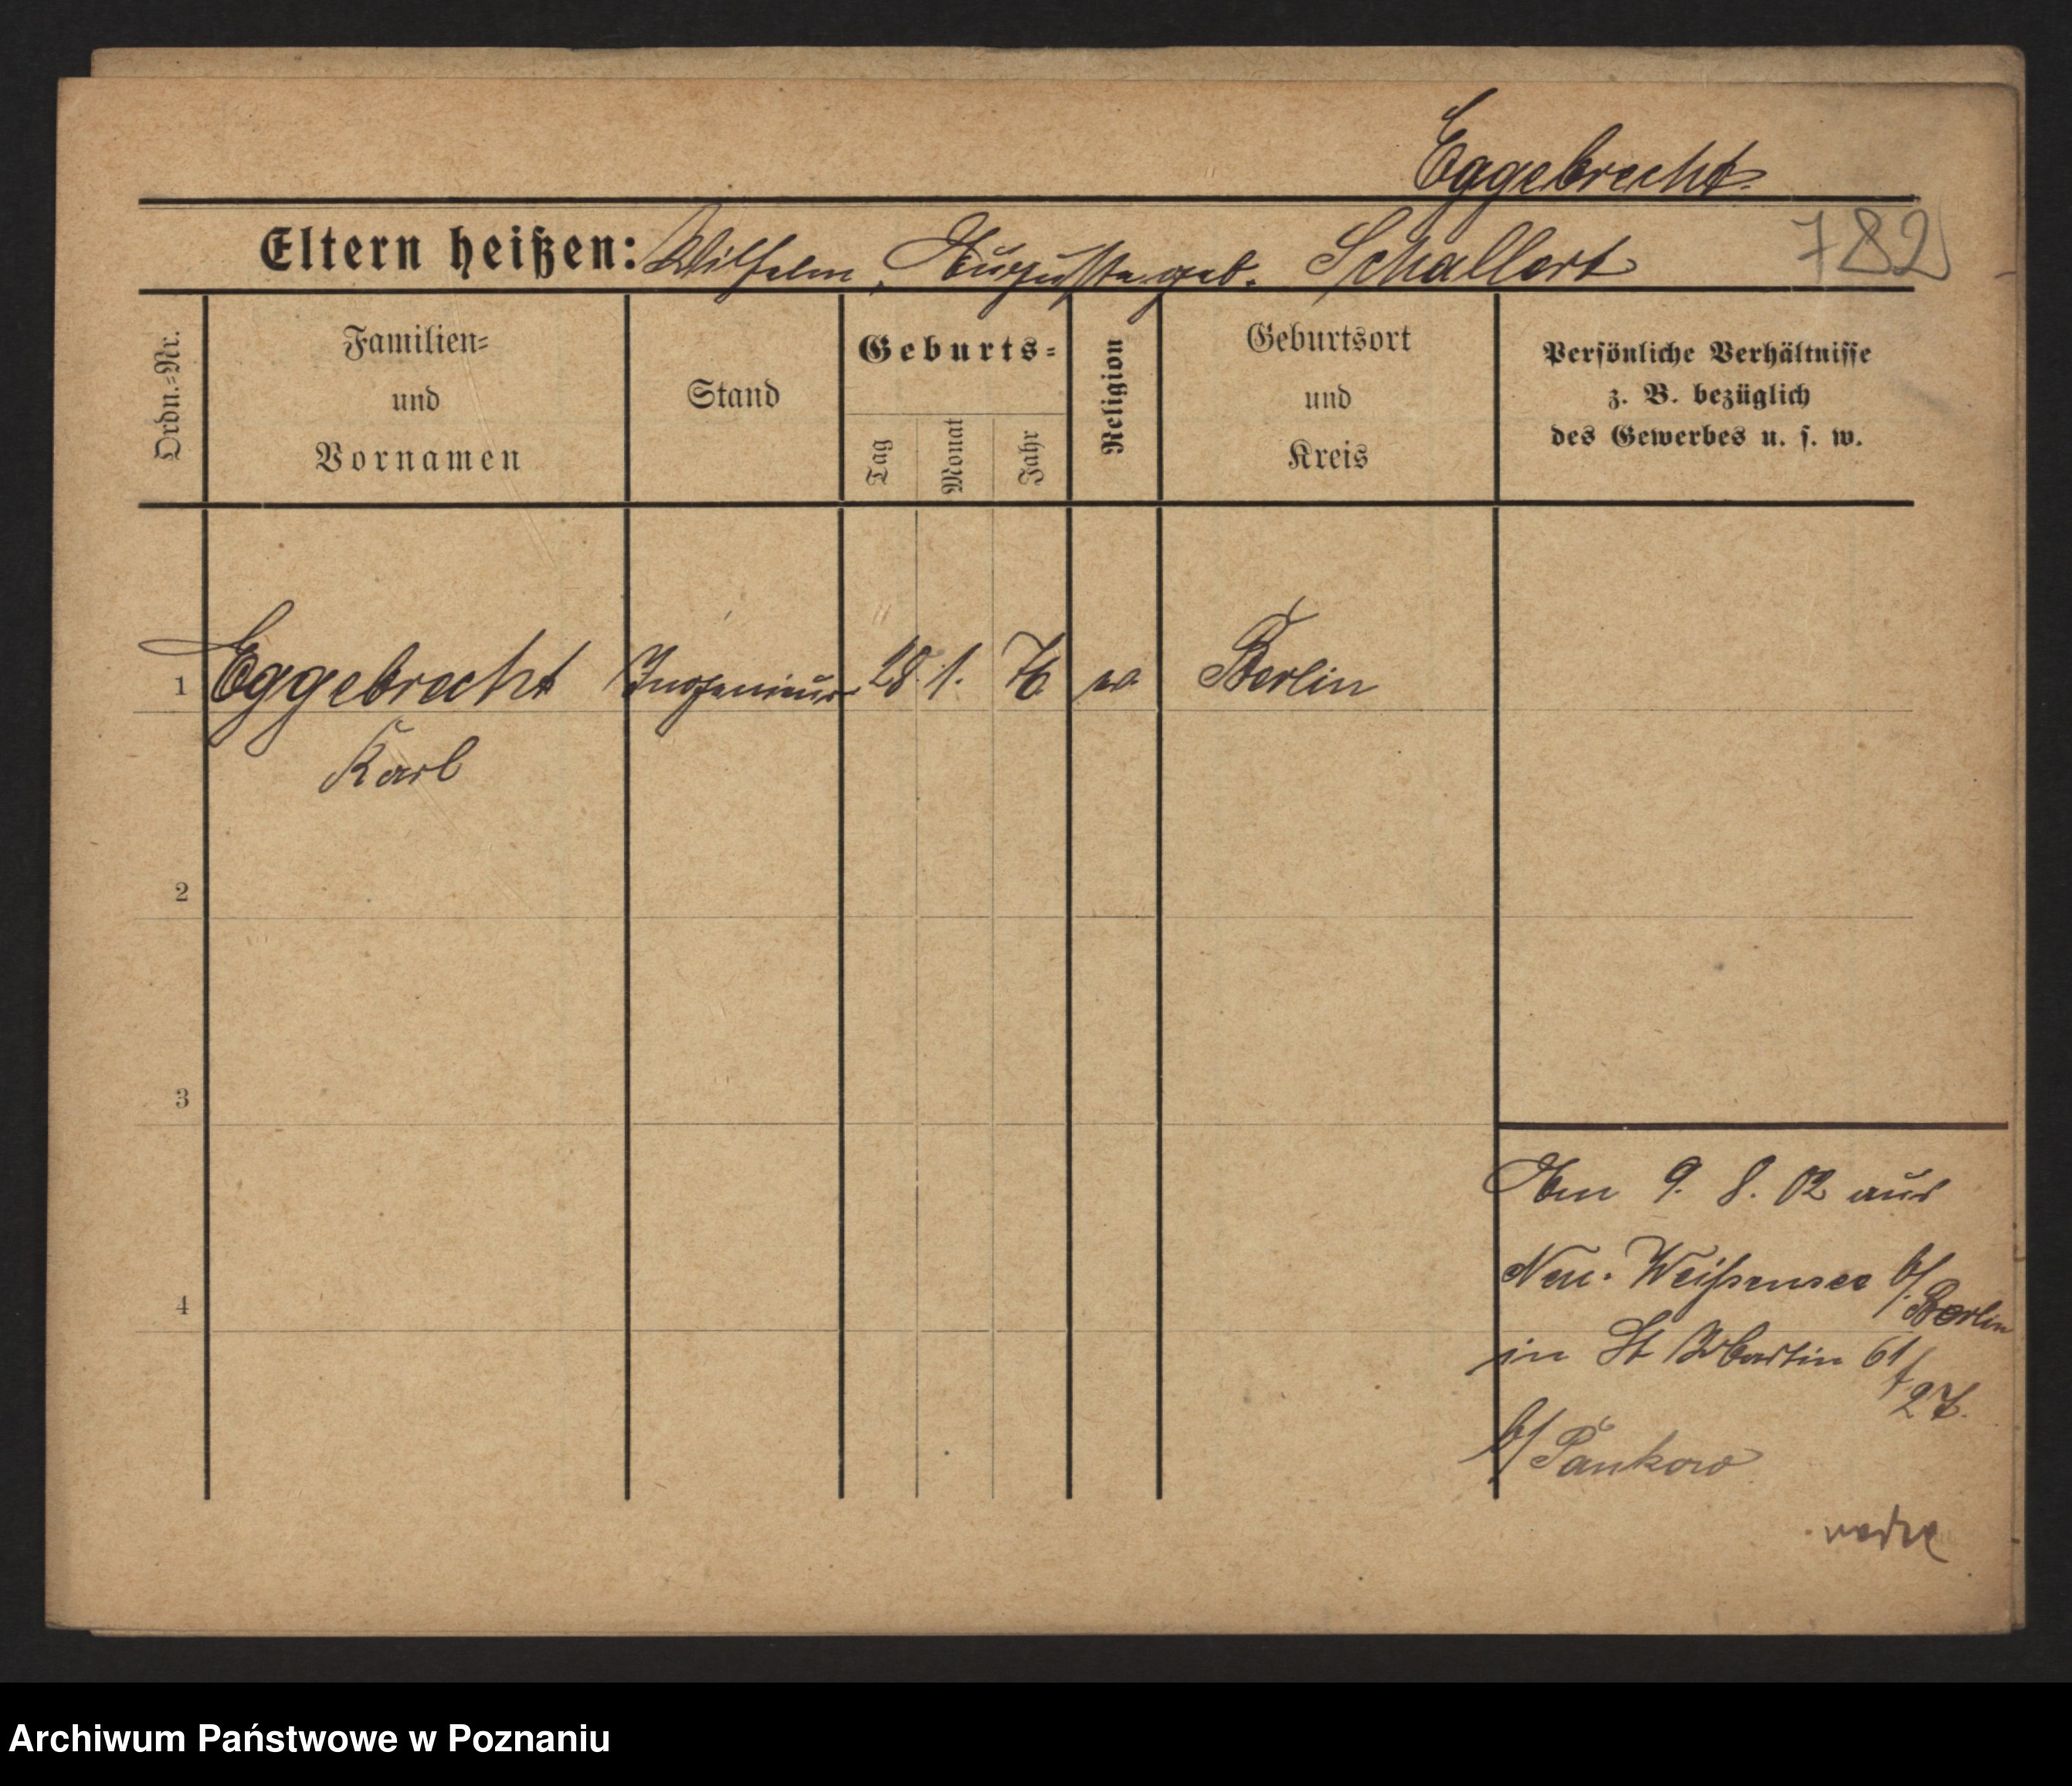 Eggebrecht
Eltern heißen: Wilhelm, Auguste geb. Schallert
782
Ordn.=Nr.
Familien=
und
Vornamen
Stand
Geburts=
Tag
Monat
Jahr
Religion
Geburtsort
und
Kreis
Persönliche Verhältnisse
z. B. bezüglich
des Gewerbes u. s. w.
1 Eggebrecht Ingenieur 28. 1. 76 ev. Berlin
Karl
2
3
4
Am 9. 8. 02 aus
Neu-Weißensee b/
Berlin
in St Martin 61/
27.
b/ Pankow
Archiwum Państwowe w Poznaniu